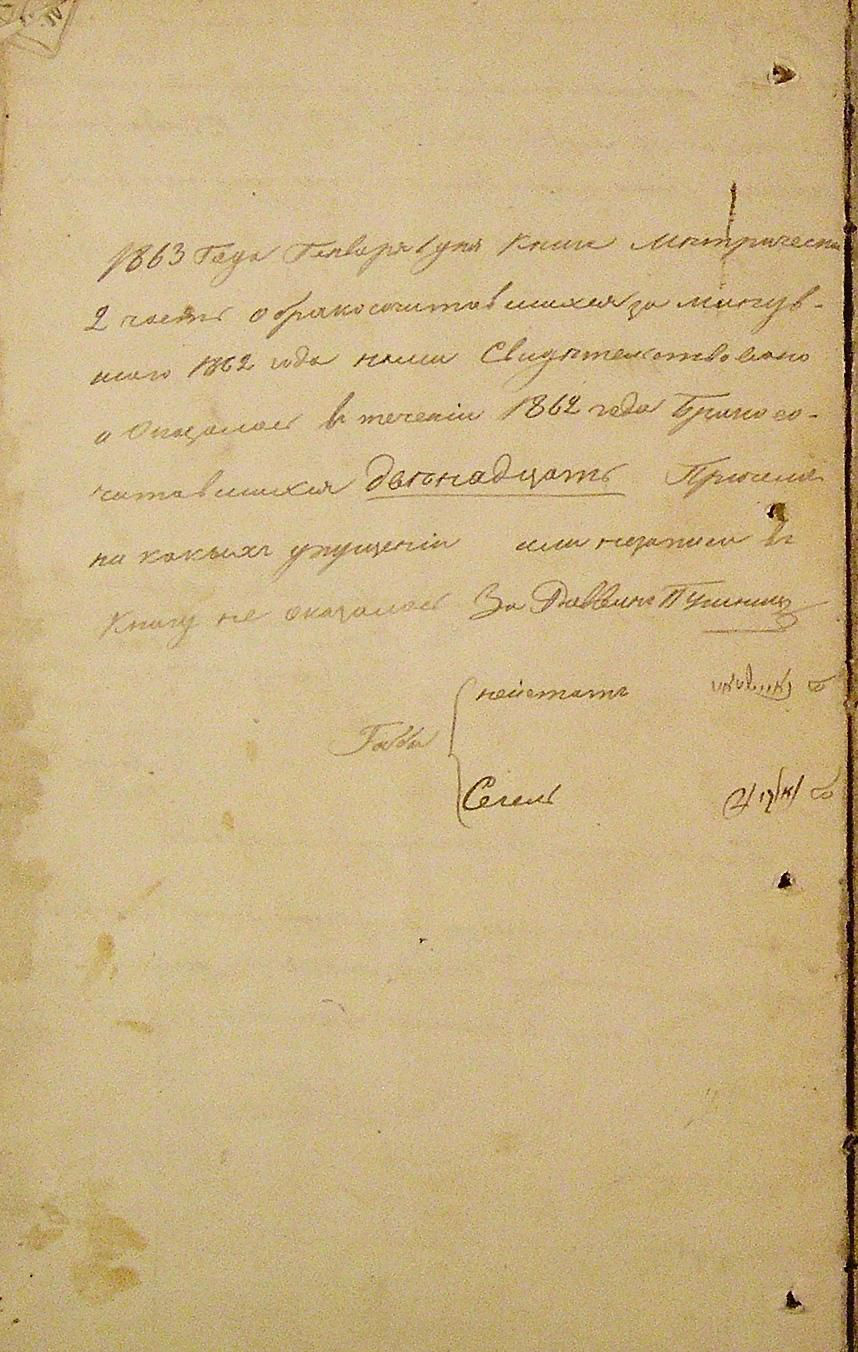 1863 Года Генваря 1 дня Книга Метрическ
2 часть о бракосочитавшихся за минув-
шаго 1862 года нами Свидѣтельствовано
и Оказалось в течении 1862 года Бракосо-
читавшихся двѣнадцать
ни какихъ упущеніи или незаписи въ
Книгу не оказалось За Раввина
Сегель